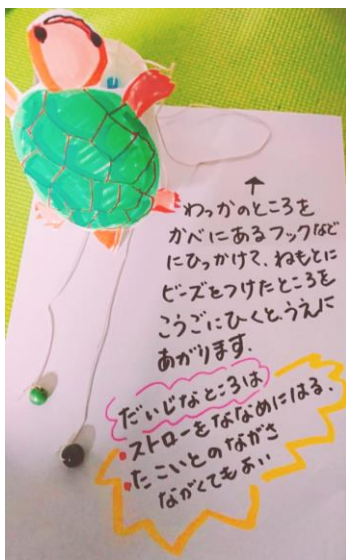 わっかのところを
かべにあるフックなど
にひっかけて、ねもとに
ビーズをつけたところを
こうごにひくと、うえに
あがります。
だいじなところは
・ストローをななめにはる、
・たこいとのながさ
ながくてもよい